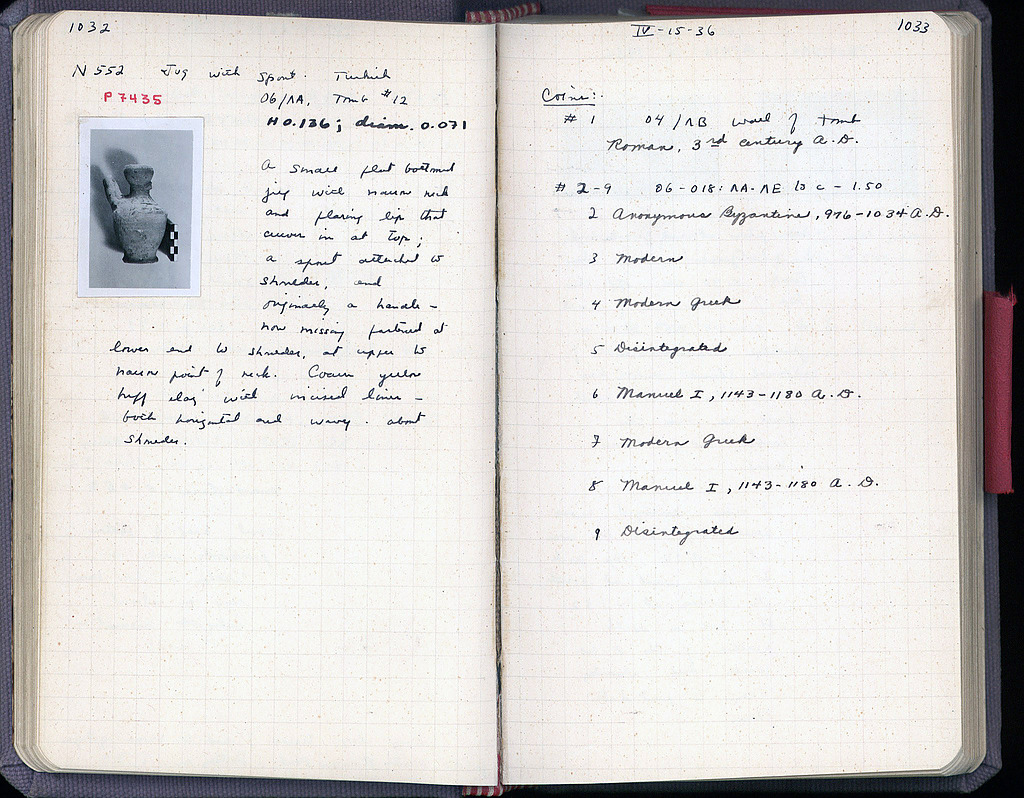 1032
N 552 Jug with Spout. Turkish
P 7435
06/ΛΑ, Tomb #12
H 0.136; diam. 0.071
A small flat bottomed
jug with narrow neck
and flaring lip that
curves in at top;
a spout attached to
shoulder, and
originally a handle –
now missing fastened at
lower end to shoulder, at upper to
narrow point of neck. Coarse
buff clay with incised lines –
both horizontal and wavy. about
shoulder.
IV-15-36
1033
Coins:
# 1 04/ΛΒ wall of tomb
Roman, 3rd century A.D.
# 2-9 06-018: ΛΑ-ΛΕ to c – 1.50
2 Anonymous Byzantine, 976-1034 A.D.
3 Modern
4 Modern Greek
5 Disintegrated
6 Manuel I, 1143-1180 A.D.
7 Modern Greek
8 Manuel I, 1143-1180 A.D.
9 Disintegrated